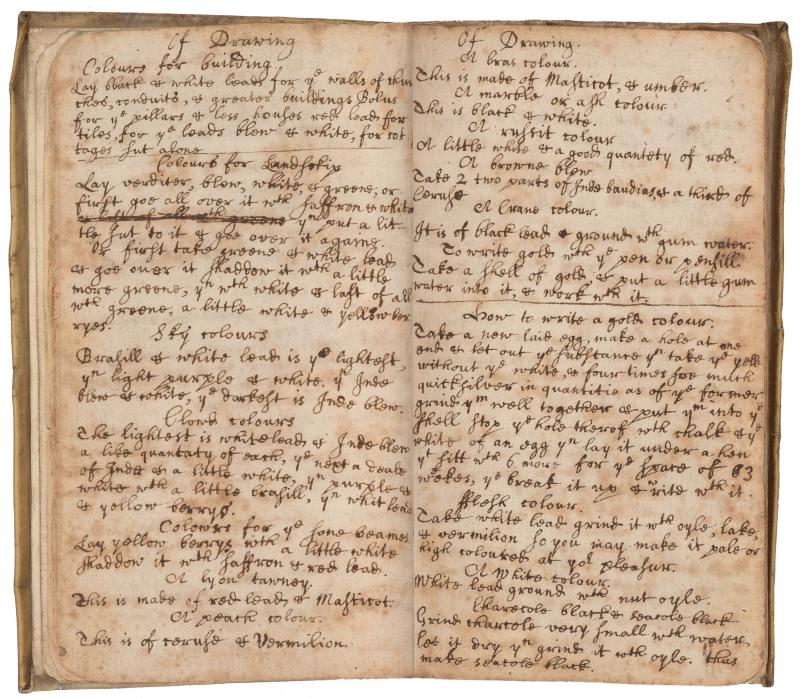 Of Drawing
Colours for building.
Lay black & white lead for ye walls of
ches, conduits, & greater buildings Bolus
for ye pillars & less houses red lead for
tiles, for ye loads blew & white, for cot
tages sut alone
Colours for Landskip
Lay verditer, blew, white, & greene, or
first goe all over it wth saffron & white
yn put a lit-
tle sut to it & goe over it againe.
Or first take greene & white lead
& goe over it shaddow it wth a little
more greene, yn wth white & last of all
wth greene, a little white & yellow ber
ryes.
Sky colours
Brasill & white lead is ye lightest,
yn light purple & white, yn Inde
blew & white, ye darkest is Inde blew.
Clowd colours
The lightest is white lead & Inde blew
a like quantaty of each, ye next a deale
of Inde & a little white, yn purple &
white wth a little brasill, yn whit lead
& yellow berrys.
Colowrs for ye sone beames
Lay yellow berrys wth a little white
shaddow it wth saffron & red lead.
A lyon tawney.
This is made of red lead & Masticot.
A peach colour.
This is of ceruse & Vermilion.
Of Drawing.
A bras colour.
This is made of Masticot, & umber.
A marble or ash colour
This is black & white.
A russit colour
A little white & a good quantety of red.
A browne blew
Take 2 two parts of Inde baudias, & a third of
Ceruse
A Crane colour.
It is of black lead & ground wth gum water.
To write gold wth ye pen or pensill.
Take a shell of gold & put a little gum
water into it, & work wth it.
How to write a gold colour.
Take a new laid egg, make a hole at one
end & let out ye substance yn take ye yelk
without ye white, & four times soe much
quicksilver in quantitie as of ye former
grind ym well together & put ym into ye
shell stop ye hole therof wth chalk & ye
white of an egg yn lay it under a hen
yt sitt wth 6 more for ye space of 3
wekes, ye break it up & write wth it.
fflesh colour.
Take white lead grind it wth oyle, lake,
& vermilion so you may make it pale or
high coloured at yor pleasur.
A White colour.
White lead ground wth nut oyle.
Charecole black & seacole black
Grind charcole very small wth water,
let it dry yn grind it wth oyle. thus
make seacole black.